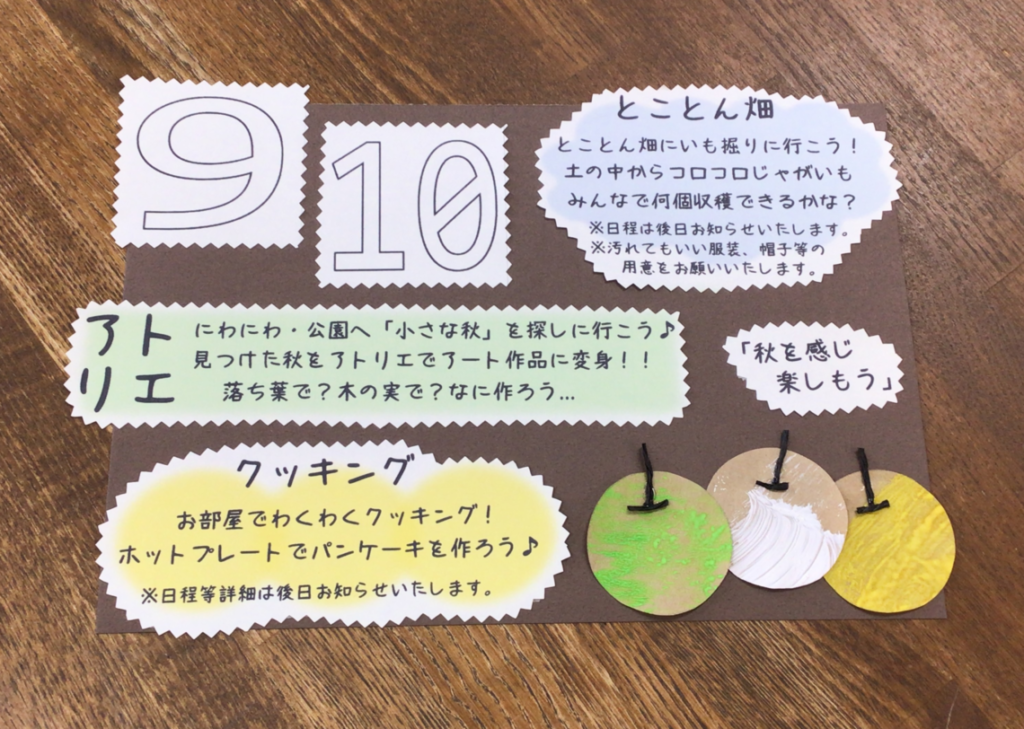 9
10
とことん畑
とことん畑にいも掘りに行こう！
土の中からコロコロじゃがいも
みんなで何個収穫できるかな？
※日程は後日お知らせいたします。
※汚れてもいい服装、帽子等の
用意をお願いいたします。
アト
リエ
にわにわ・公園へ「小さな秋」を探しに行こう♪
見つけた秋をアトリエでアート作品に変身！！
落ち葉で？木の実で？なに作ろう…
「秋を感じ
楽しもう」
クッキング
お部屋でわくわくクッキング！
ホットプレートでパンケーキを作ろう♪
※日程等詳細は後日お知らせいたします。